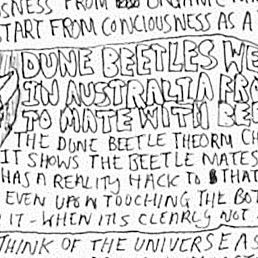 SNESS FROM ORGANIC MA
START FROM CONCIOUSNESS AS A
DUNE BEETLES WE
IN AUSTRALIA FRO
TO MATE WITH BEE
THE DUNE BEETLE THEORM CH
IT SHOWS THE BEETLE MATES
HAS A REALITY HACK TO THAT
EVEN UPON TOUCHING THE BOT
IT - WHEN ITS CLEARLY NOT
THINK OF THE UNIVERSE AS